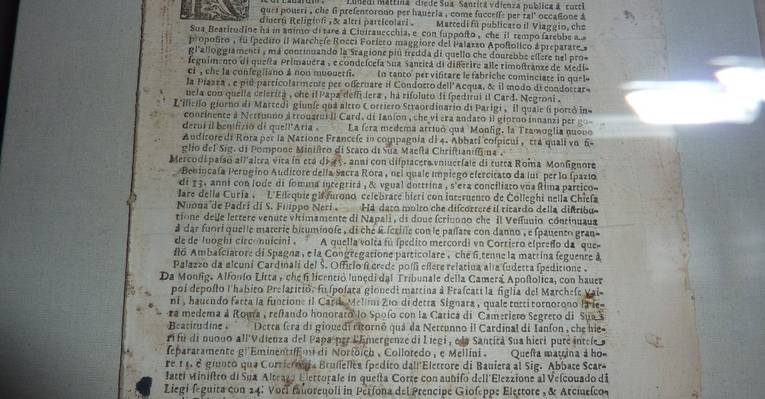 le di Labardin. Lunedi mattina diede Sua Santità vdienza publica à tutti
quei poueri, che si presentorono per hauerla, come successe per tal' occasione à
diuersi Religiosi, & altri particolari. Martedì fù publicato il Viaggio, che
Sua Beatitudine hà in animo di fare à Ciuitauecchia, e con supposto, che il tempo sarebbe a
proposito, fù spedito il Marchese Rocci Foriero maggiore del Palazzo Apostolico à preparare
gl'alloggiamenti, mà continuando la Stagione più fredda di quello che dourebbe essere nel pro-
seguimento di questa Primauera, e condescesa Sua Santità di differire alle rimostranze de Medi-
ci, che la consegliano à non muouersi. In tanto per visitare le fabriche cominciate in quel-
la Piazza, e più particolarmente per osseruare il Condotto dell'Acqua, & il modo di condottar-
uela con quella celerità, che il Papa desidera, hà risoluto si spedirui il Card. Negroni.
L'istesso giorno di Martedì giunse quà altro Corriero Straordinario di Parigi, il quale si portò in-
continente à Nettunno à trouarui il Card. di Ianson, che vi era andato il giorno innanzi per go-
derui il benifizio di quell'Aria. La sera medema arriuò quà Monsig. la Tramoglia nuouo
Auditore di Rota per la Natione Francese in compagnia di 4. Abbati cospicui, trà quali vn fi-
glio del Sig. di Pompone Ministro di Stato di Sua Maestà Christianissima.
Mercordì passò all'altra vita in età di anni con dispiacere vniuersale di tutta Roma Monsignore
Benincasa Perugino Auditore della Sacra Rota, nel quale impiego esercitato da lui per lo spazio
di 13. anni con lode di somma integrità, & vgual dottrina, s'era conciliato vna stima partico-
lare della Curia. L'Essequie gli furono celebrate hieri con interuento de Colleghi nella Chiesa
Nuoua de Padri di S. Filippo Neri. Hà dato molto che discorrere il ritardo della distribu-
tione delle lettere venute vltimamente di Napoli, di doue scriuono che il Vessuuio continuaua
à dar fuori quelle materie bituminose, di che si scrisse con le passate con danno, e spauento gran-
de de luoghi circonuicini. A quella volta fù spedito mercordì vn Corriero espresso da que-
sto Ambasciatore di Spagna, e la Congregatione particolare, che si tenne la mattina seguente à
Palazzo da alcuni Cardinali del S. Offitio si crede possi essere relatiua alla sudetta speditione.
Da Monsig. Alfonso Litta, che si licentiò lunedì dal Tribunale della Camera Apostolica, con hauer
poi deposto l'habito Prelatitio, fù sposata giouedì mattina à Frascati la figlia del Marchese Vai-
ni, hauendo fatta la funtione il Card. Mellini Zio di detta Signara, quale tutti tornorono la se-
ra medema à Roma, restando honorato lo Sposo con la Carica di Cameriero Segreto di Sua
Beatitudine. Detta sera di giouedì ritornò quà da Nettunno il Cardinal di Ianson, che hie-
ri fù di nuouo all'Vdienza del Papa per l'Emergenze di Liegi, e la Santità Sua hieri pure intese
separaramente gl'Eminentissimi di Nortfoich, Colloredo, e Mellini. Questa mattina à ho-
re 13. è giunto quà Corriero da Brusselles spedito dall'Elettore di Bauiera al Sig. Abbate Scar-
latti Ministro di Sua Altezza Elettorale in questa Corte con auuiso dell'Elezzione al Vescouado di
Liegi seguita con 24. Voti fauoreuoli in Persona del Prencipe Gioseppe Elettore, & Arciuesco-